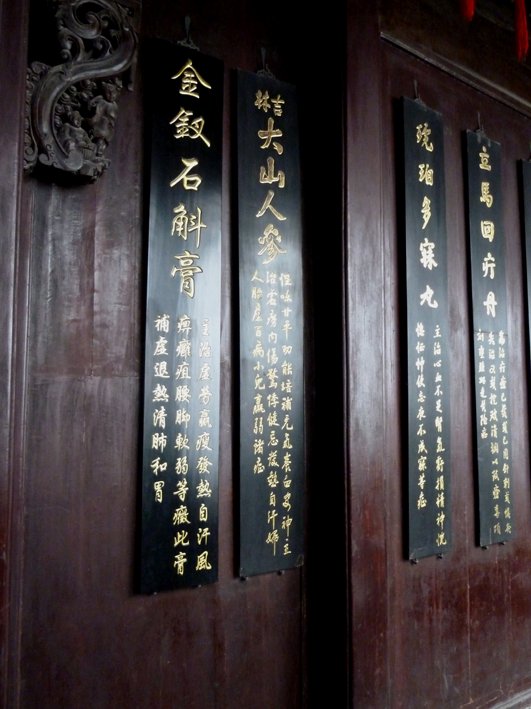 立馬回疔丹
琥珀多寐丸
主治心血不足腎氣虧損精神恍
惚怔忡健忘夜不成寐等症
吉林大山人參
味甘平功能培補元氣養血安神主
治虛勞內傷驚悸健忘發熱自汗婦
人胎產百病小兒羸弱諸症
金釵石斛膏
主治虛勞羸瘦發熱自汗風
痹癱疽腰脚軟弱等癥此膏
補虛退熱清肺和胃